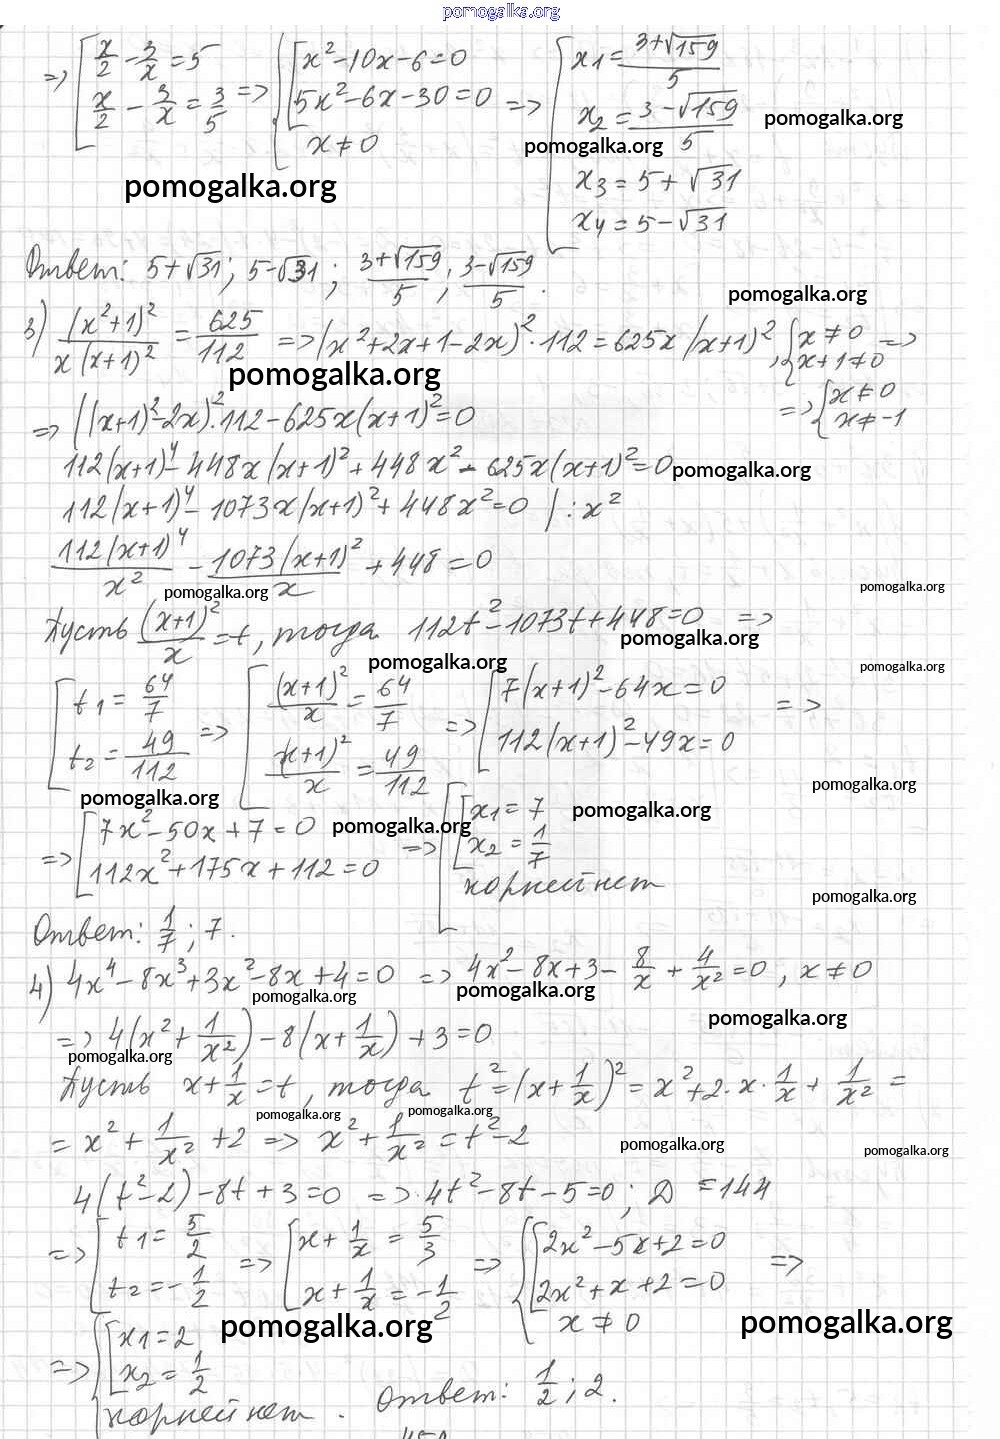 pomogalka.org
=> [ x/2 - 3/x = 5 ; x/2 - 3/x = 3/5 => { [ x² - 10x - 6 = 0 ; 5x² - 6x - 30 = 0 ; x ≠ 0 => [ x1 = (3+√159)/5 ; x2 = (3-√159)/5 ; x3 = 5+√31 ; x4 = 5-√31
pomogalka.org
pomogalka.org
pomogalka.org
Ответ: 5+√31; 5-√31; (3+√159)/5; (3-√159)/5.
pomogalka.org
3) (x²+1)²/(x(x+1)²) = 625/112 => (x²+2x+1-2x)²·112 = 625x(x+1)², { x ≠ 0 ; x+1 ≠ 0 =>
=> { x ≠ 0 ; x ≠ -1
pomogalka.org
=> ((x+1)²-2x)²·112 - 625x(x+1)² = 0
112(x+1)⁴ - 448x(x+1)² + 448x² - 625x(x+1)² = 0
pomogalka.org
112(x+1)⁴ - 1073x(x+1)² + 448x² = 0 | : x²
112(x+1)⁴/x² - 1073(x+1)²/x + 448 = 0
pomogalka.org
pomogalka.org
Пусть (x+1)²/x = t, тогда 112t² - 1073t + 448 = 0 =>
pomogalka.org
pomogalka.org
pomogalka.org
[ t1 = 64/7 ; t2 = 49/112 => [ (x+1)²/x = 64/7 ; (x+1)²/x = 49/112 => [ 7(x+1)² - 64x = 0 ; 112(x+1)² - 49x = 0 =>
pomogalka.org
pomogalka.org
pomogalka.org
pomogalka.org
=> [ 7x² - 50x + 7 = 0 ; 112x² + 175x + 112 = 0 => [ [ x1 = 7 ; x2 = 1/7 ; корней нет
pomogalka.org
Ответ: 1/7; 7.
4) 4x⁴ - 8x³ + 3x² - 8x + 4 = 0 => 4x² - 8x + 3 - 8/x + 4/x² = 0, x ≠ 0
pomogalka.org
pomogalka.org
pomogalka.org
=> 4(x² + 1/x²) - 8(x + 1/x) + 3 = 0
pomogalka.org
Пусть x + 1/x = t, тогда t² = (x + 1/x)² = x² + 2·x·1/x + 1/x² =
pomogalka.org
pomogalka.org
= x² + 1/x² + 2 => x² + 1/x² = t² - 2
pomogalka.org
pomogalka.org
4(t² - 2) - 8t + 3 = 0 => 4t² - 8t - 5 = 0; D = 144
=> [ t1 = 5/2 ; t2 = -1/2 => [ x + 1/x = 5/3 ; x + 1/x = -1/2 => { [ 2x² - 5x + 2 = 0 ; 2x² + x + 2 = 0 ; x ≠ 0 =>
pomogalka.org
pomogalka.org
=> { [ x1 = 2 ; x2 = 1/2 ; корней нет. Ответ: 1/2; 2.